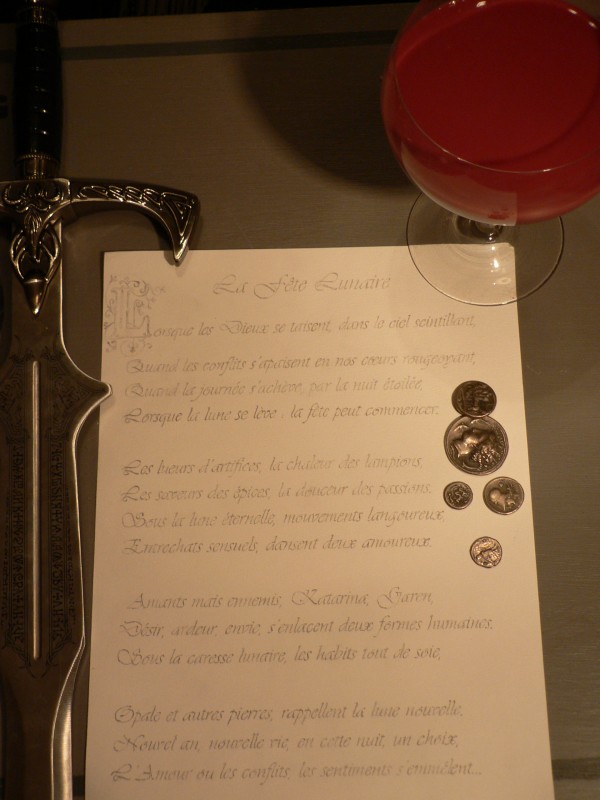 La Fête Lunaire
Lorsque les Dieux se taisent, dans le ciel scintillant,
Quand les conflits s'apaisent en nos cœurs rougeoyant,
Quand la journée s'achève, par la nuit étoilée,
Lorsque la lune se lève : la fête peut commencer.
Les lueurs d'artifices, la chaleur des lampions,
Les saveurs des épices, la douceur des passions.
Sous la lune éternelle, mouvements langoureux,
Entrechats sensuels, dansent deux amoureux.
Amants mais ennemis, Katarina, Garen,
Désir, ardeur, envie, s'enlacent deux formes humaines,
Sous la caresse lunaire, les habits tout de soie,
Opale et autres pierres, rappellent la lune nouvelle.
Nouvel an, nouvelle vie, en cette nuit, un choix,
L'Amour ou les conflits, les sentiments s'emmêlent...